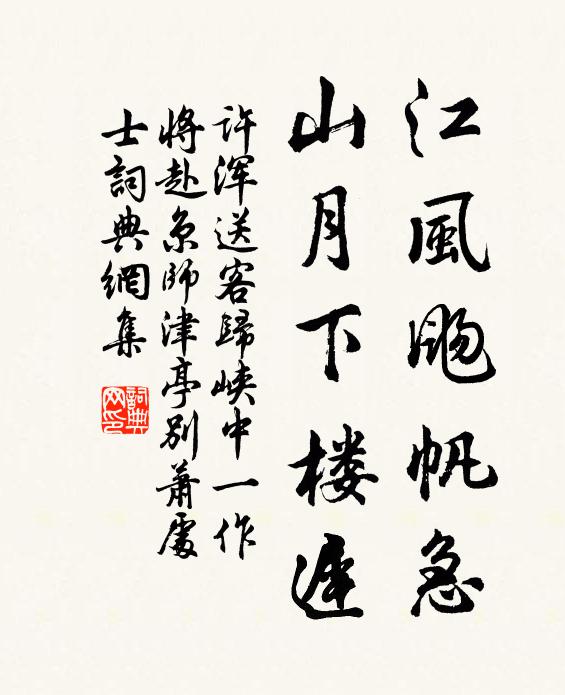 江風颺帆急
山月下楼遲
许渾送客歸峡中一作
將赴京師津亭别蕭處
士詞典網集
詞典网印